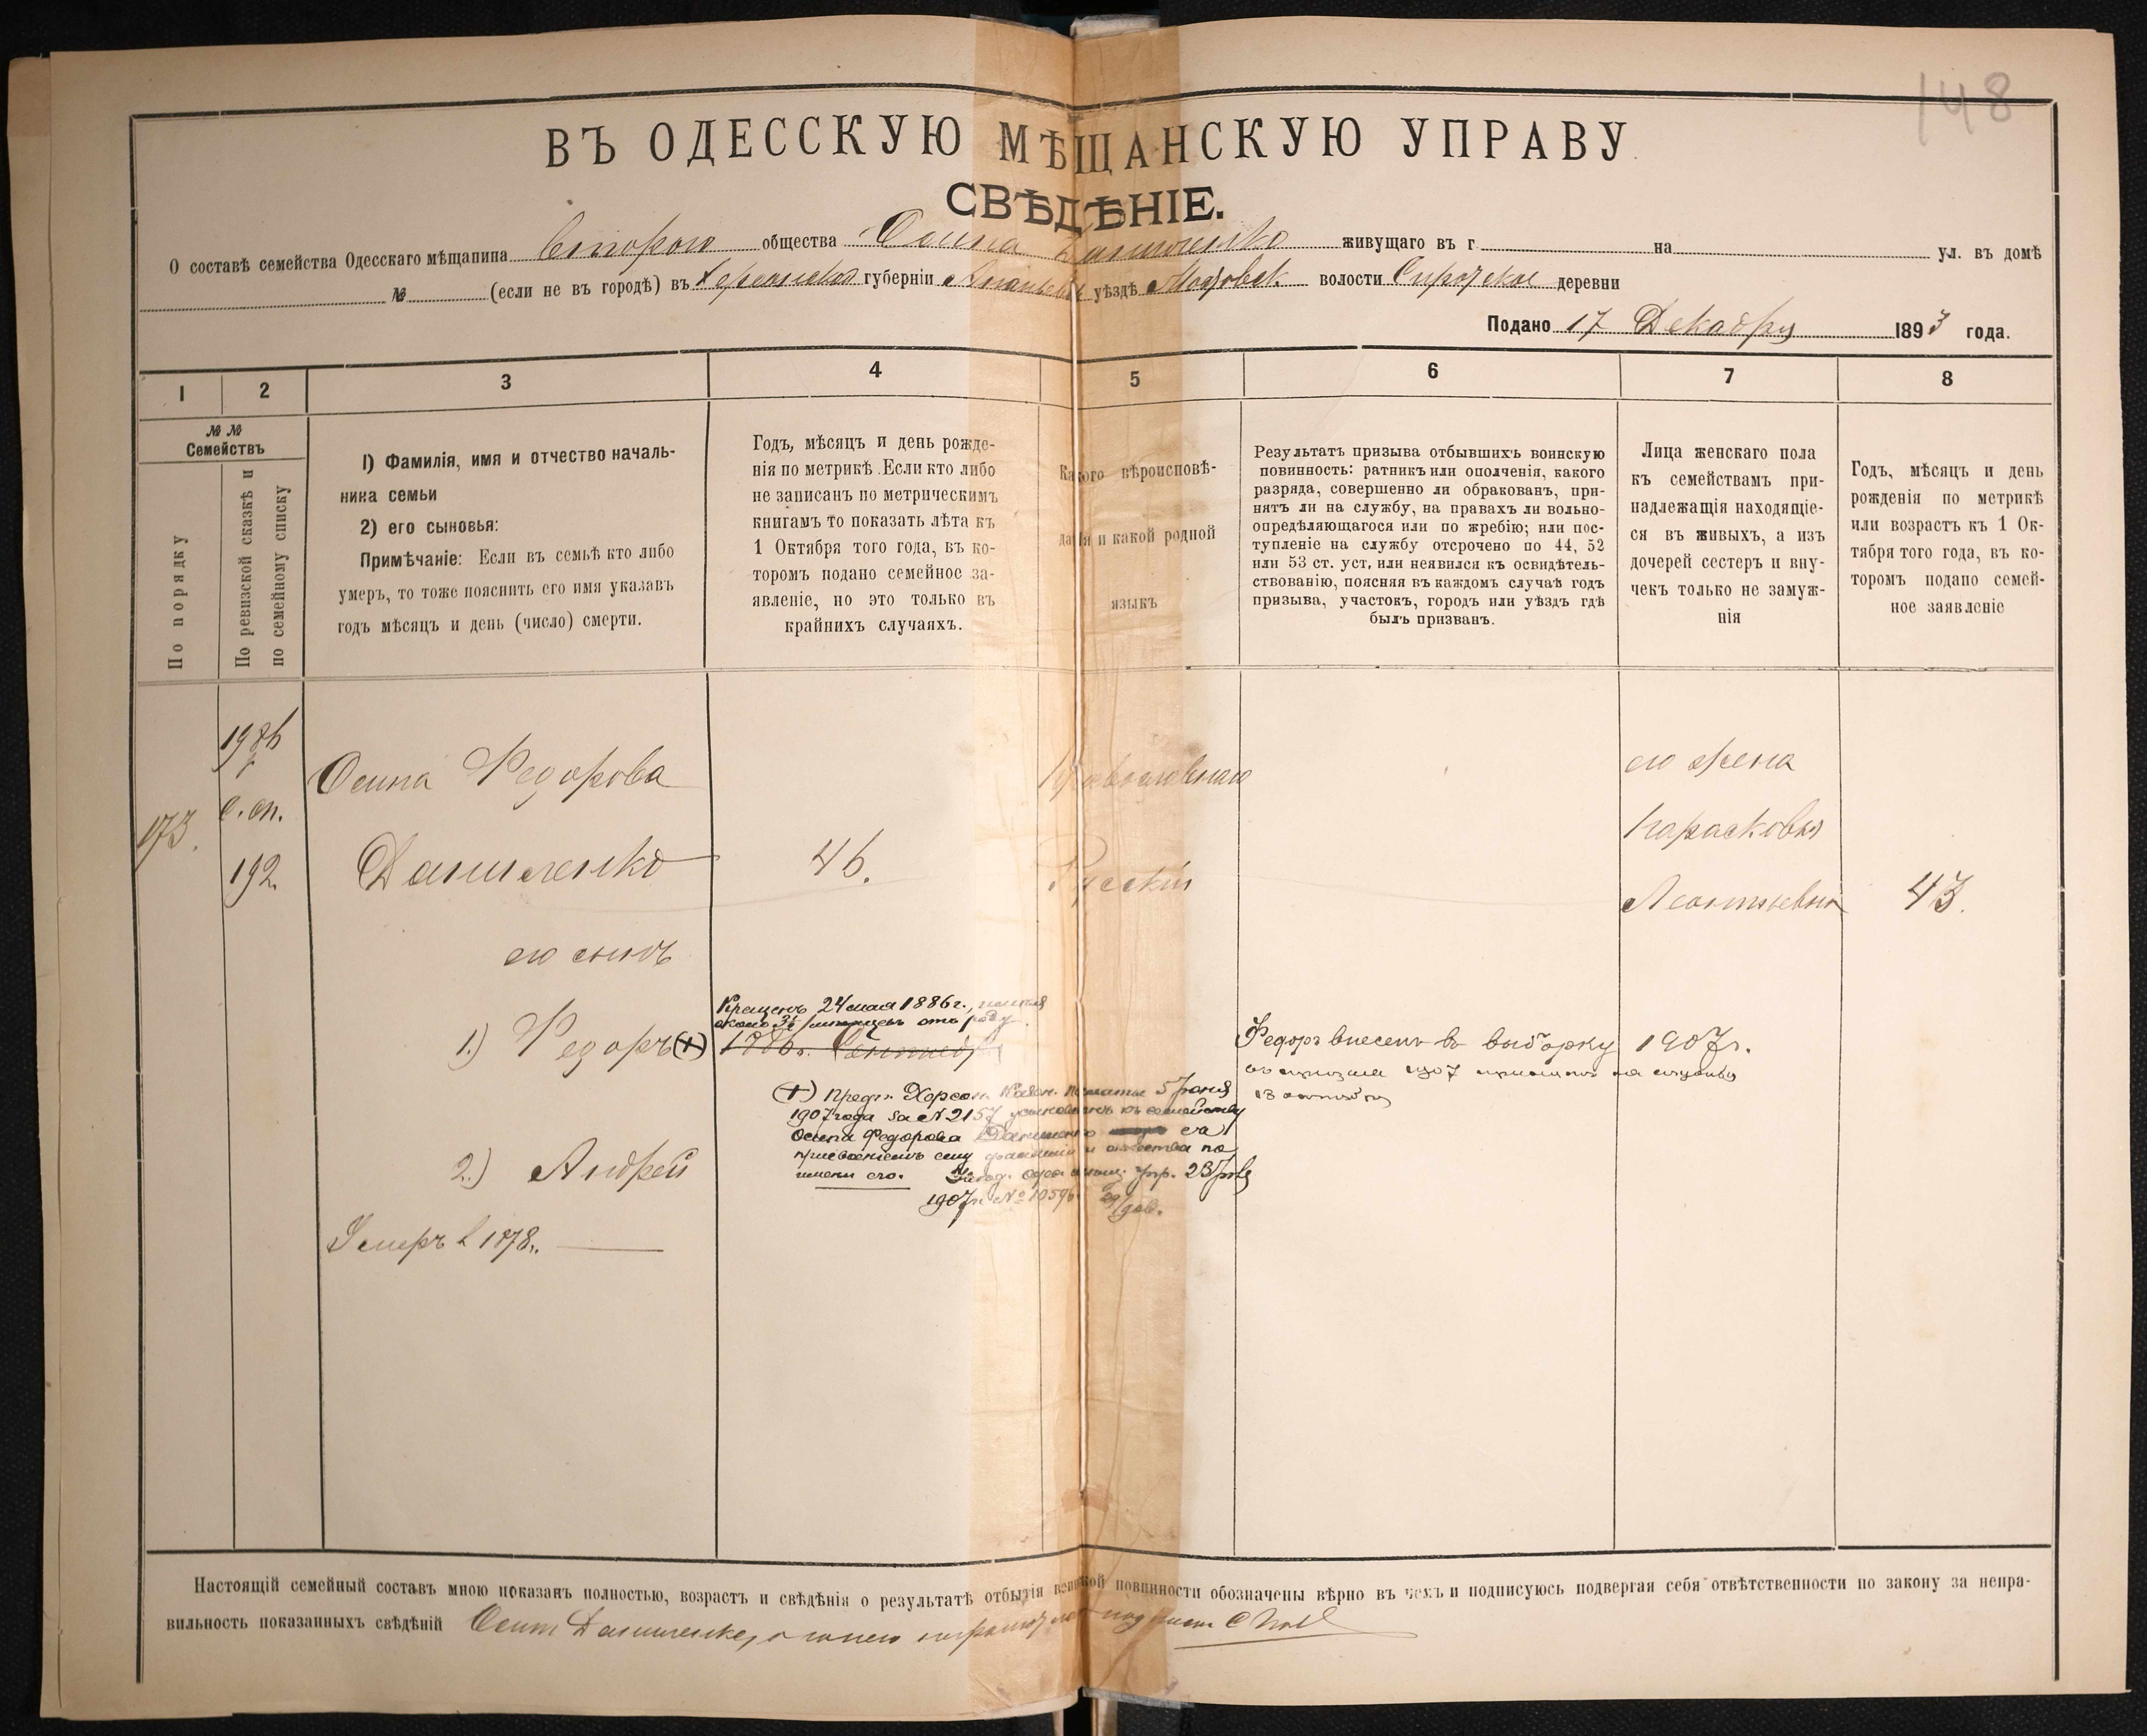 148
ВЪ ОДЕССКУЮ МѢЩАНСКУЮ УПРАВУ
СВѢДѢНІЕ.
О составѣ семейства Одесскаго мѣщанина Второго общества Осипа Данименко живущаго въ г на ул. въ домѣ
№ (если не въ городѣ) въ Херсонской губерніи Ананьевск уѣздѣ волости деревни
Подано 17 Декабря 1893 года.
1 2 3 4 5 6 7 8
№ №
Семействъ
По порядку
По ревизской сказкѣ и
по семейному списку
1) Фамилія, имя и отчество началь-
ника семьи
2) его сыновья:
Примѣчаніе: Если въ семьѣ кто либо
умеръ, то тоже пояснить его имя указавъ
годъ мѣсяцъ и день (число) смерти.
Годъ, мѣсяцъ и день рожде-
нія по метрикѣ. Если кто либо
не записанъ по метрическимъ
книгамъ то показать лѣта къ
1 Октября того года, въ ко-
торомъ подано семейное за-
явленіе, но это только въ
крайнихъ случаяхъ.
Какого вѣроисповѣ-
данія и какой родной
языкъ
Результатъ призыва отбывшихъ воинскую
повинность: ратникъ или ополченія, какого
разряда, совершенно ли обракованъ, при-
нятъ ли на службу, на правахъ ли вольно-
опредѣляющагося или по жребію; или пос-
тупленіе на службу отсрочено по 44, 52
или 53 ст. уст, или неявился къ освидѣтель-
ствованію, поясняя въ каждомъ случаѣ годъ
призыва, участокъ, городъ или уѣздъ гдѣ
былъ призванъ.
Лица женскаго пола
къ семействамъ при-
надлежащія находящіе-
ся въ живыхъ, а изъ
дочерей сестеръ и вну-
чекъ только не замуж-
нія
Годъ, мѣсяцъ и день
рожденія по метрикѣ
или возрастъ къ 1 Ок-
тября того года, въ ко-
торомъ подано семей-
ное заявленіе
173.
с. сп.
192.
Осипа Федорова
Даниленко
46.
Православнаго
Русскій
его жена
Парасковья
Леонтьевна
43.
его сынъ
1.) Федоръ (+)
Крещенъ 24 мая 1886 г.,
около 3½ отъ роду
1886 г. Сентября
(+) Предп. Херсон. Казен. Палаты 5 Іюня
1907 года за № 2157 къ семейству
Осипа Федорова Даниленко съ
присвоеніемъ ему фамиліи и отчества по
имени его. упр. 23
1907 г. №
Федоръ внесенъ въ выборку 1907 г.
1907 на службу
2.) Андрей
Умеръ въ 1878 г.
Настоящій семейный составъ мною показанъ полностью, возрастъ и свѣдѣнія о результатѣ отбытія воинской повинности обозначены вѣрно въ чемъ и подписуюсь подвергая себя отвѣтственности по закону за непра-
вильность показанныхъ свѣдѣній Осипъ Даниленко, а